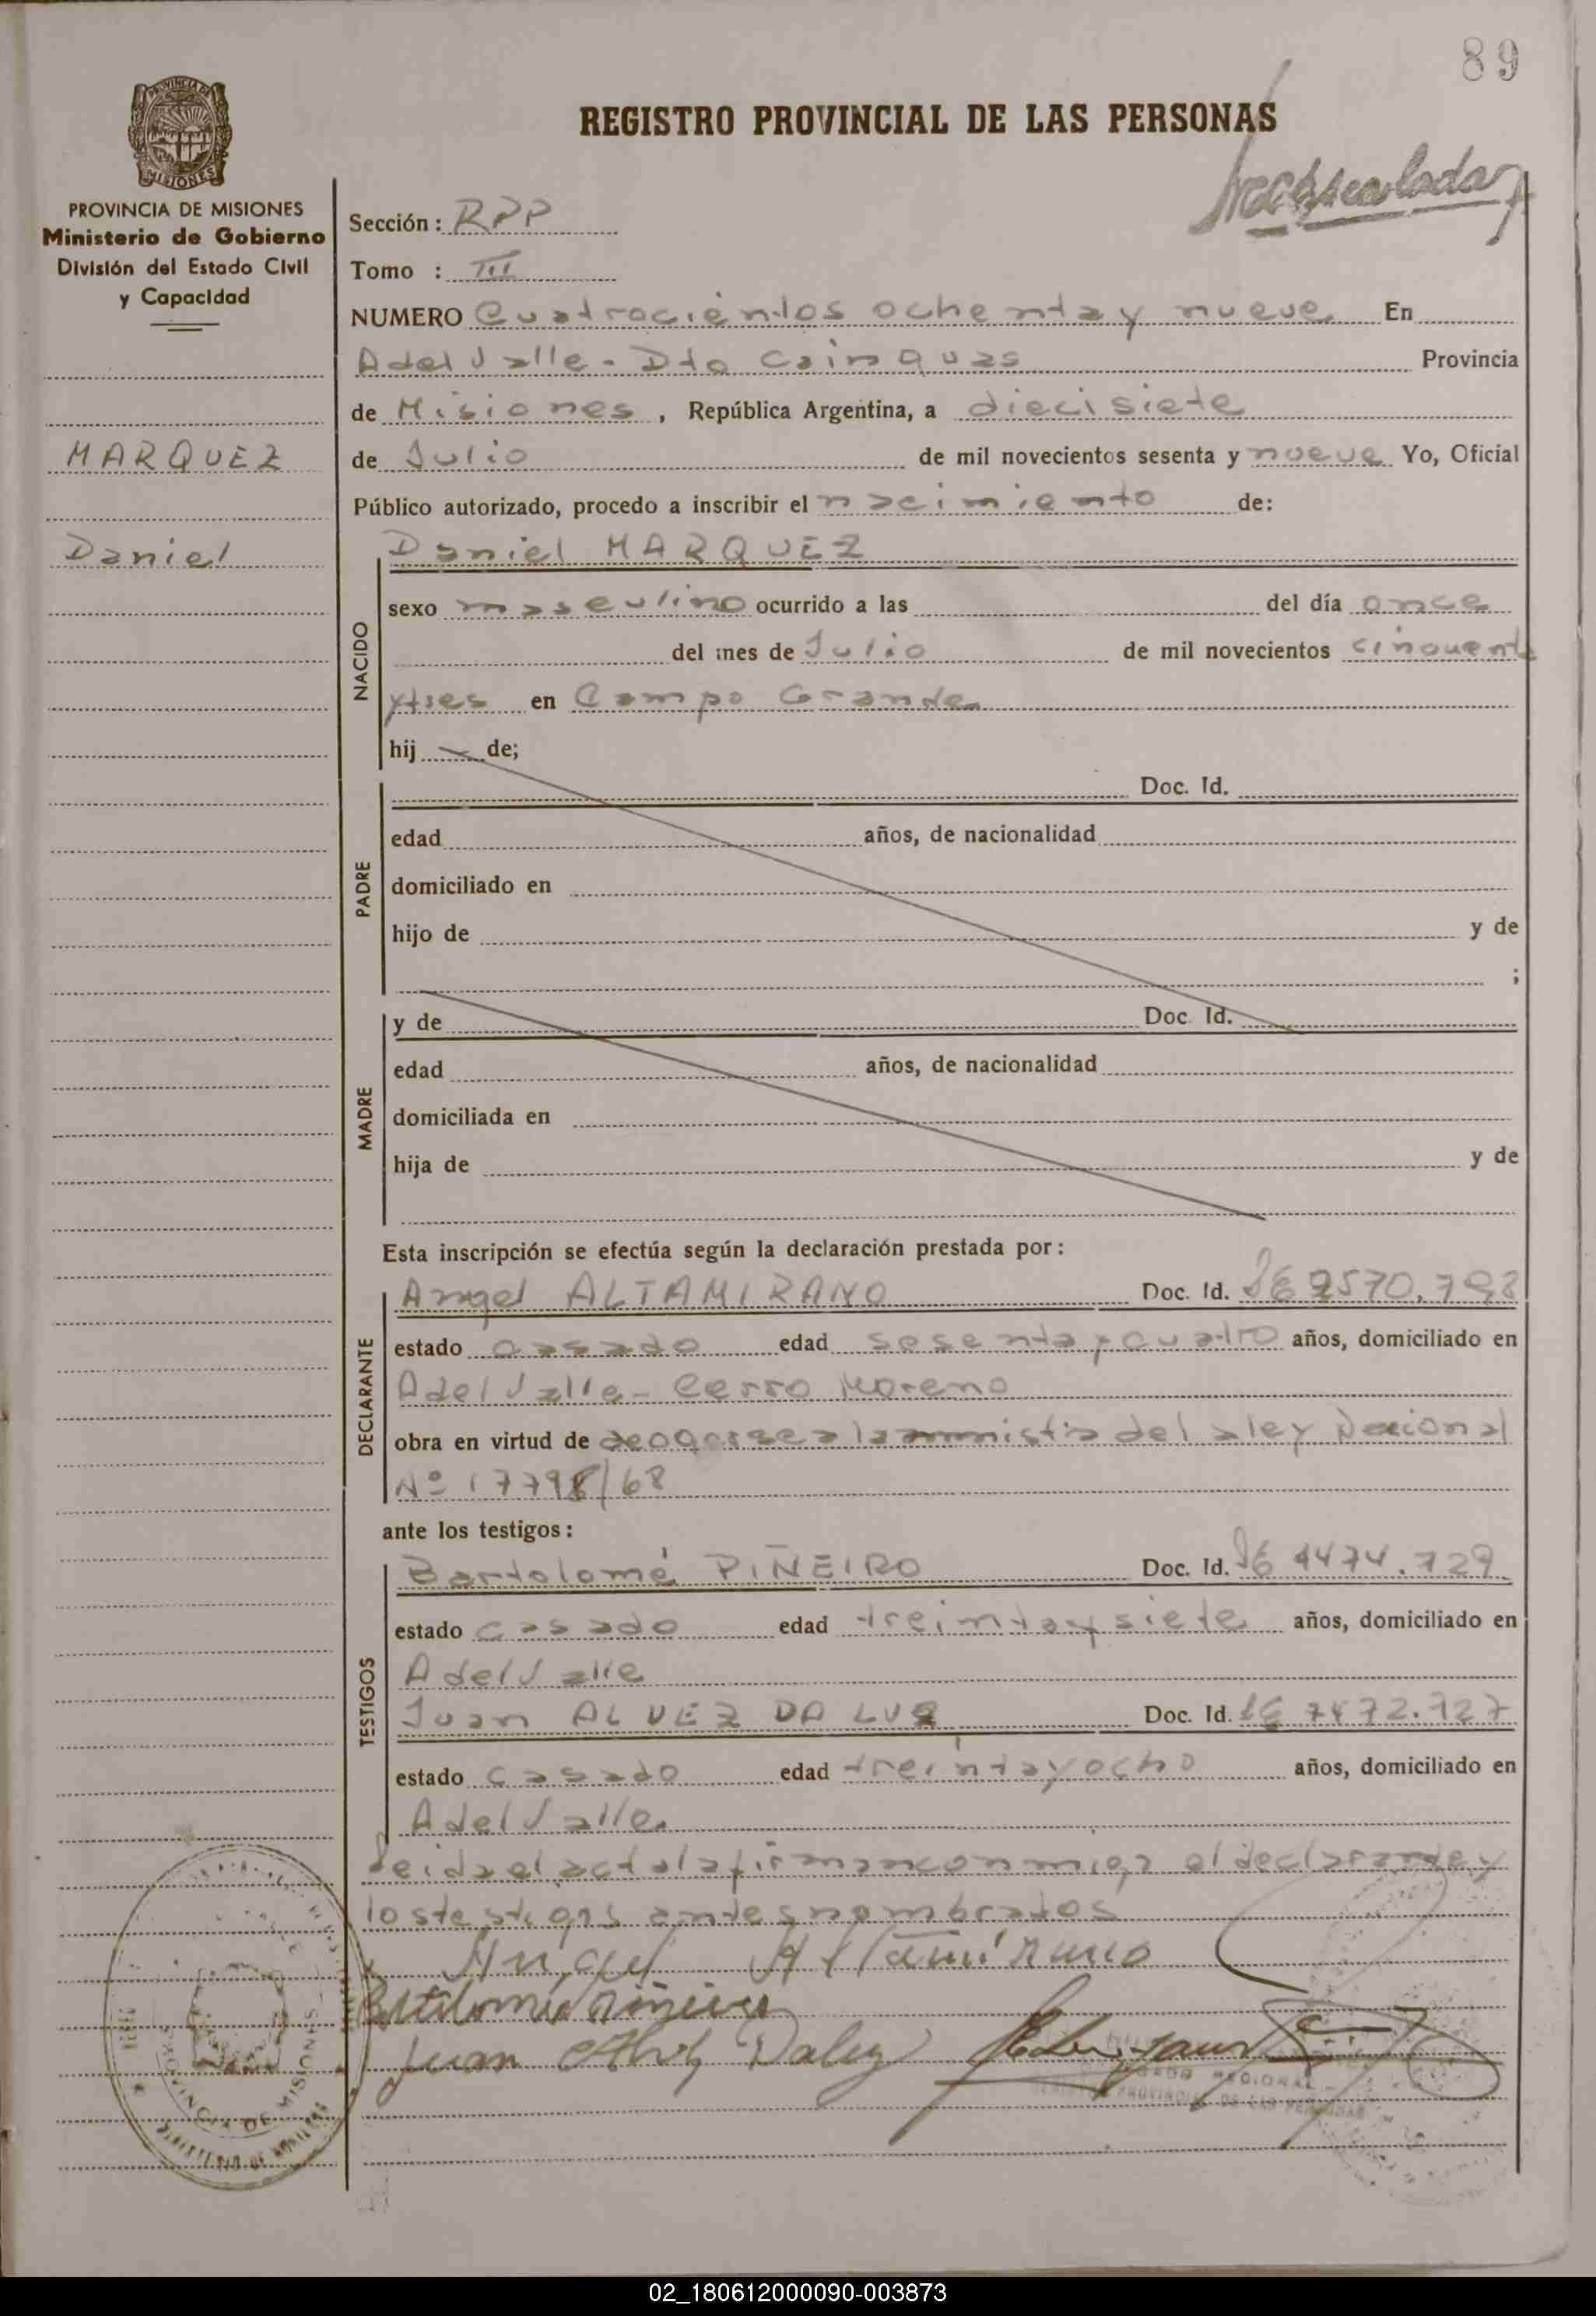 89
REGISTRO PROVINCIAL DE LAS PERSONAS
PROVINCIA DE MISIONES
Ministerio de Gobierno
División del Estado Civil
y Capacidad
MARQUEZ
Daniel
Sección: RPP
Tomo : III
NUMERO Cuatrocientos ochenta y nueve En
A del Valle - Dto Cainguas Provincia
de Misiones, República Argentina, a diecisiete
de Julio de mil novecientos sesenta y nueve Yo, Oficial
Público autorizado, procedo a inscribir el nacimiento de:
NACIDO
Daniel MARQUEZ
sexo masculino ocurrido a las del día once
del mes de Julio de mil novecientos cincuenta
y tres en Campo Grande
hij de;
PADRE
Doc. Id.
edad años, de nacionalidad
domiciliado en
hijo de y de
;
MADRE
y de Doc. Id.
edad años, de nacionalidad
domiciliada en
hija de y de
Esta inscripción se efectúa según la declaración prestada por:
DECLARANTE
Angel ALTAMIRANO Doc. Id.
estado casado edad sesenta y cuatro años, domiciliado en
A del Valle - Cerro Moreno
obra en virtud de acogerse a la amnistia de la ley Nacional
Nº 17798/68
ante los testigos:
TESTIGOS
Bartolomé PIÑEIRO Doc. Id. 4474.729
estado casado edad treinta y siete años, domiciliado en
A del Valle
Juan ALVEZ DA LUZ Doc. Id. 7472.727
estado casado edad treinta y ocho años, domiciliado en
A del Valle
Leida el acta la firman conmigo el declarante y
los testigos antes nombrados
Angel Altamirano
Bartolomé Piñeiro
Juan Alves Daluz
REGIONAL
PROVINCIA DE MISIONES
02_180612000090-003873